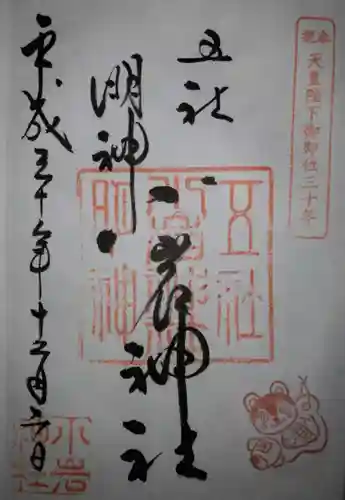 奉祝 天皇陛下御即位三十年
五社
明神
小岩神社
平成三十年十二月六日
五社
明神